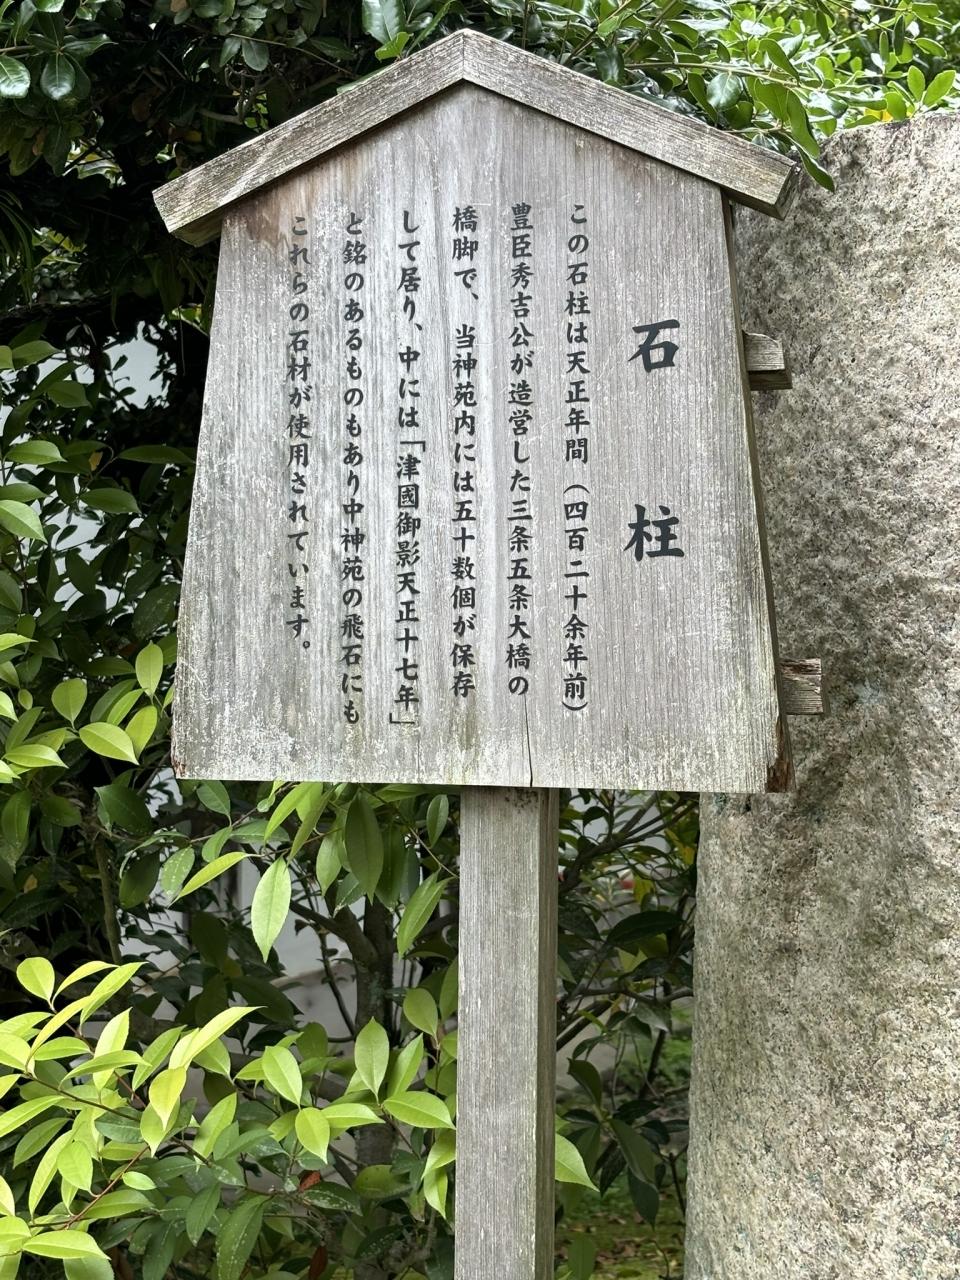 石柱
この石柱は天正年間（四百二十余年前）
豊臣秀吉公が造営した三条五条大橋の
橋脚で、当神苑内には五十数個が保存
して居り、中には「津國御影天正十七年」
と銘のあるものもあり中神苑の飛石にも
これらの石材が使用されています。